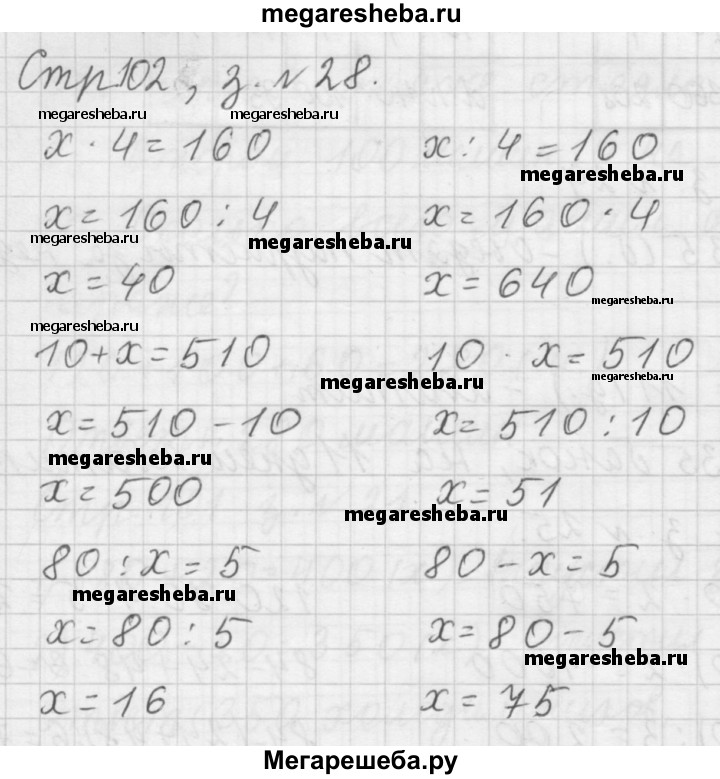 megaresheba.ru
Стр102, з. №28.
megaresheba.ru megaresheba.ru
x · 4 = 160 x : 4 = 160
megaresheba.ru
x = 160 : 4 x = 160 · 4
megaresheba.ru megaresheba.ru
x = 40 x = 640
megaresheba.ru
megaresheba.ru
10 + x = 510 10 · x = 510
megaresheba.ru megaresheba.ru
x = 510 - 10 x = 510 : 10
megaresheba.ru
x = 500 x = 51
megaresheba.ru
80 : x = 5 80 - x = 5
megaresheba.ru
x = 80 : 5 x = 80 - 5
megaresheba.ru
x = 16 x = 75
Мегарешеба.ру